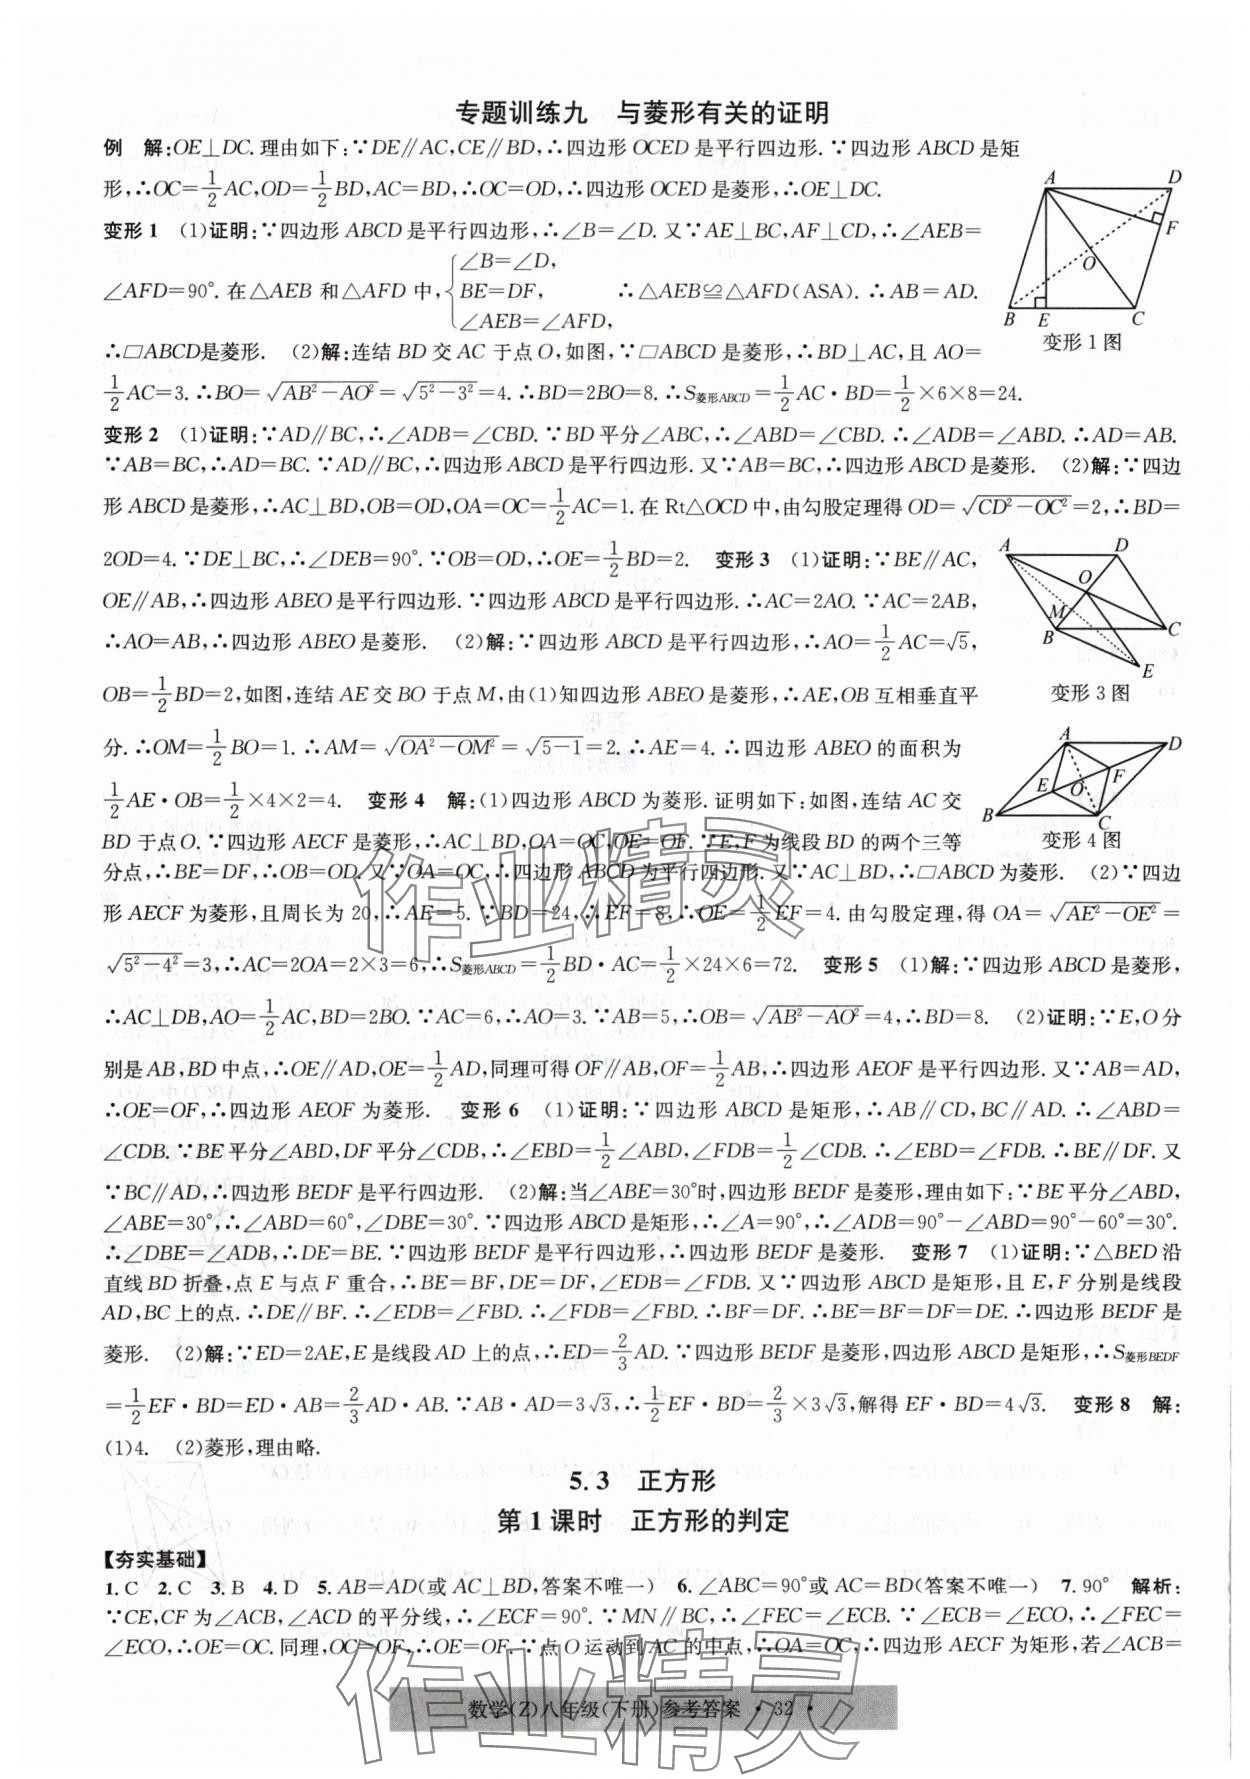 专题训练九　与菱形有关的证明
例　解:OE⊥DC.理由如下:∵DE∥AC,CE∥BD,∴四边形 OCED 是平行四边形.∵四边形 ABCD 是矩
形,∴OC=1/2AC,OD=1/2BD,AC=BD,∴OC=OD,∴四边形 OCED 是菱形,∴OE⊥DC.
变形 1　(1)证明:∵四边形 ABCD 是平行四边形,∴∠B=∠D.又∵AE⊥BC,AF⊥CD,∴∠AEB=
∠AFD=90°.在△AEB 和△AFD 中,{∠B=∠D, BE=DF, ∠AEB=∠AFD, ∴△AEB≌△AFD(ASA).∴AB=AD.
∴□ABCD是菱形.　(2)解:连结 BD 交 AC 于点 O,如图,∵□ABCD 是菱形,∴BD⊥AC,且 AO=
1/2AC=3.∴BO=√(AB²-AO²)=√(5²-3²)=4.∴BD=2BO=8.∴S菱形ABCD=1/2AC·BD=1/2×6×8=24.
A D F O B E C
变形 1 图
变形 2　(1)证明:∵AD∥BC,∴∠ADB=∠CBD.∵BD 平分∠ABC,∴∠ABD=∠CBD.∴∠ADB=∠ABD.∴AD=AB.
∵AB=BC,∴AD=BC.∵AD∥BC,∴四边形 ABCD 是平行四边形.又∵AB=BC,∴四边形 ABCD 是菱形.　(2)解:∵四边
形 ABCD 是菱形,∴AC⊥BD,OB=OD,OA=OC=1/2AC=1.在 Rt△OCD 中,由勾股定理得 OD=√(CD²-OC²)=2,∴BD=
2OD=4.∵DE⊥BC,∴∠DEB=90°.∵OB=OD,∴OE=1/2BD=2.　变形 3　(1)证明:∵BE∥AC,
OE∥AB,∴四边形 ABEO 是平行四边形.∵四边形 ABCD 是平行四边形,∴AC=2AO.∵AC=2AB,
∴AO=AB,∴四边形 ABEO 是菱形.　(2)解:∵四边形 ABCD 是平行四边形,∴AO=1/2AC=√5,
OB=1/2BD=2,如图,连结 AE 交 BO 于点 M,由(1)知四边形 ABEO 是菱形,∴AE,OB 互相垂直平
分.∴OM=1/2BO=1.∴AM=√(OA²-OM²)=√(5-1)=2.∴AE=4.∴四边形 ABEO 的面积为
1/2AE·OB=1/2×4×2=4.　变形 4　解:(1)四边形 ABCD 为菱形.证明如下:如图,连结 AC 交
BD 于点 O.∵四边形 AECF 是菱形,∴AC⊥BD,OA=OC,OE=OF.∵E,F 为线段 BD 的两个三等
A D O M B C E
变形 3 图
A D E O F B C
变形 4 图
分点,∴BE=DF,∴OB=OD.又∵OA=OC,∴四边形 ABCD 为平行四边形.又∵AC⊥BD,∴□ABCD 为菱形.　(2)∵四边
形 AECF 为菱形,且周长为 20,∴AE=5.∵BD=24,∴EF=8,∴OE=1/2EF=4.由勾股定理,得 OA=√(AE²-OE²)=
√(5²-4²)=3,∴AC=2OA=2×3=6,∴S菱形ABCD=1/2BD·AC=1/2×24×6=72.　变形 5　(1)解:∵四边形 ABCD 是菱形,
∴AC⊥DB,AO=1/2AC,BD=2BO.∵AC=6,∴AO=3.∵AB=5,∴OB=√(AB²-AO²)=4,∴BD=8.　(2)证明:∵E,O 分
别是 AB,BD 中点,∴OE∥AD,OE=1/2AD,同理可得 OF∥AB,OF=1/2AB,∴四边形 AEOF 是平行四边形.又∵AB=AD,
∴OE=OF,∴四边形 AEOF 为菱形.　变形 6　(1)证明:∵四边形 ABCD 是矩形,∴AB∥CD,BC∥AD.∴∠ABD=
∠CDB.∵BE 平分∠ABD,DF 平分∠CDB,∴∠EBD=1/2∠ABD,∠FDB=1/2∠CDB.∴∠EBD=∠FDB.∴BE∥DF.又
∵BC∥AD,∴四边形 BEDF 是平行四边形.　(2)解:当∠ABE=30°时,四边形 BEDF 是菱形,理由如下:∵BE 平分∠ABD,
∠ABE=30°,∴∠ABD=60°,∠DBE=30°.∵四边形 ABCD 是矩形,∴∠A=90°,∴∠ADB=90°-∠ABD=90°-60°=30°.
∴∠DBE=∠ADB,∴DE=BE.∵四边形 BEDF 是平行四边形,∴四边形 BEDF 是菱形.　变形 7　(1)证明:∵△BED 沿
直线 BD 折叠,点 E 与点 F 重合,∴BE=BF,DE=DF,∠EDB=∠FDB.又∵四边形 ABCD 是矩形,且 E,F 分别是线段
AD,BC 上的点.∴DE∥BF.∴∠EDB=∠FBD.∴∠FDB=∠FBD.∴BF=DF.∴BE=BF=DF=DE.∴四边形 BEDF 是
菱形.　(2)解:∵ED=2AE,E 是线段 AD 上的点,∴ED=2/3AD.∵四边形 BEDF 是菱形,四边形 ABCD 是矩形,∴S菱形BEDF
=1/2EF·BD=ED·AB=2/3AD·AB.∵AB·AD=3√3,∴1/2EF·BD=2/3×3√3,解得 EF·BD=4√3.　变形 8　解:
(1)4.　(2)菱形,理由略.
5.3　正方形
第 1 课时　正方形的判定
【夯实基础】
1.C　2.C　3.B　4.D　5.AB=AD(或 AC⊥BD,答案不唯一)　6.∠ABC=90°或 AC=BD(答案不唯一)　7.90°　解析:
∵CE,CF 为∠ACB,∠ACD 的平分线,∴∠ECF=90°.∵MN∥BC,∴∠FEC=∠ECB.∵∠ECB=∠ECO,∴∠FEC=
∠ECO,∴OE=OC.同理,OC=OF,∴OE=OF.∵点 O 运动到 AC 的中点,∴OA=OC,∴四边形 AECF 为矩形,若∠ACB=
数学(Z)八年级(下册)参考答案 · 32 ·
作业精灵
作业精灵